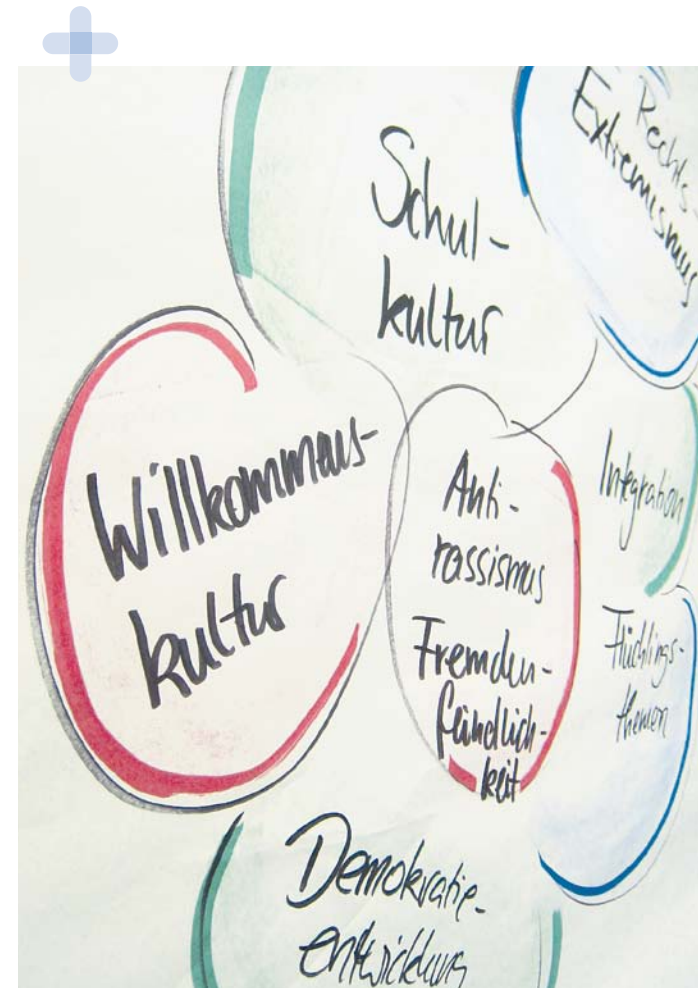 Schul-
kultur
Rechts
Extremismus
Willkommens-
kultur
Anti-
rassismus
Fremden-
feindlich-
keit
Integration
Flüchtlings-
themen
Demokratie-
entwicklung